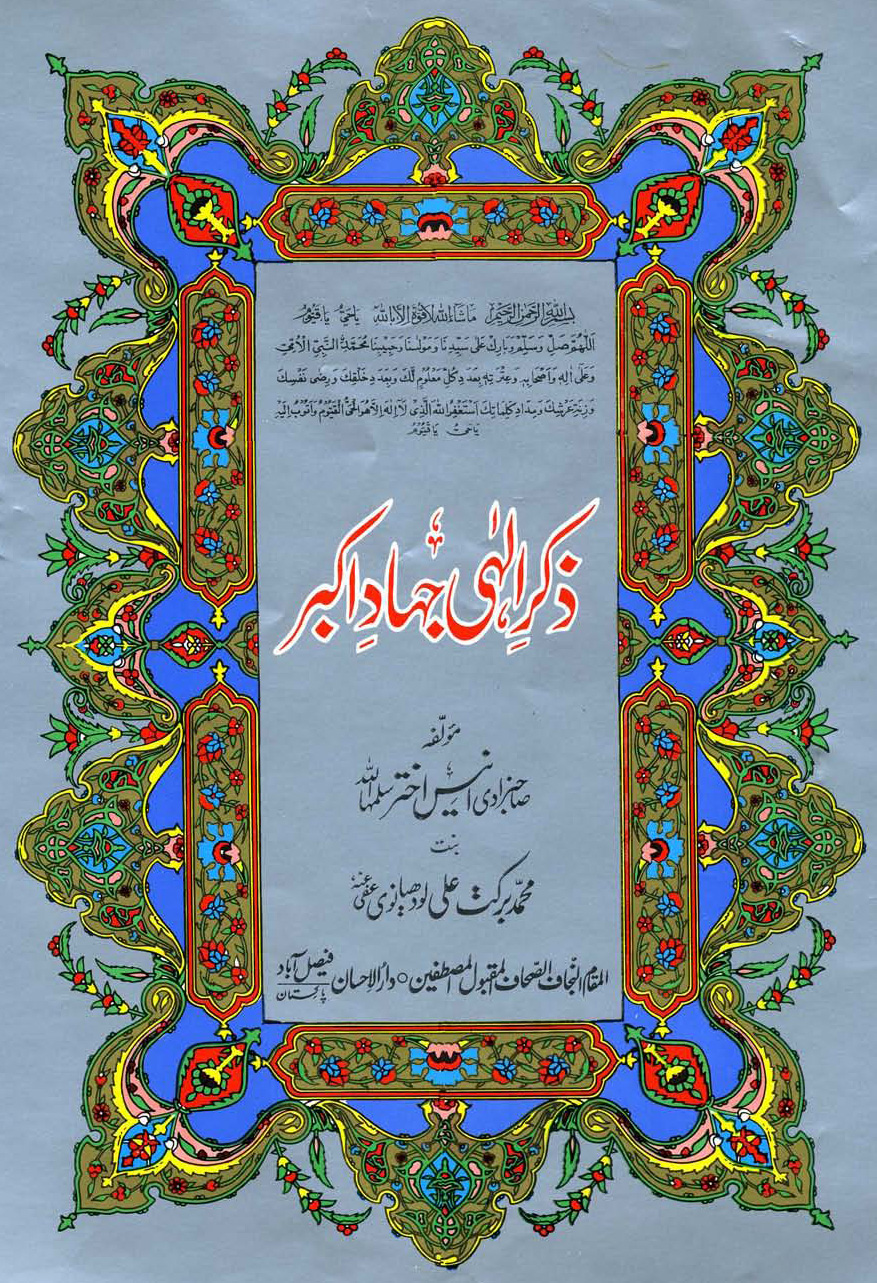 بِسْمِ اللهِ الرَّحْمٰنِ الرَّحِيْمِ مَا شَآءَ اللهُ لَا قُوَّةَ اِلَّا بِاللهِ يَا حَيُّ يَا قَيُّوْمُ
اَللّٰهُمَّ صَلِّ وَسَلِّمْ وَبَارِكْ عَلٰى سَيِّدِنَا وَمَوْلٰىنَا وَحَبِيْبِنَا مُحَمَّدِ النَّبِيِّ الْاُمِّيِّ
وَعَلٰى اٰلِهٖ وَاَصْحَابِهٖ وَعِتْرَتِهٖ بِعَدَدِ كُلِّ مَعْلُوْمٍ لَّكَ وَبِعَدَدِ خَلْقِكَ وَرِضٰى نَفْسِكَ
وَزِنَةِ عَرْشِكَ وَمِدَادِ كَلِمَاتِكَ اَسْتَغْفِرُ اللهَ الَّذِىْ لَآ اِلٰهَ اِلَّا هُوَ الْحَيُّ الْقَيُّوْمُ وَاَتُوْبُ اِلَيْهِ
يَا حَيُّ يَا قَيُّوْمُ
ذکرِ الٰہی جہادِ اکبر
مؤلّفہ
صاحبزادی انیس اختر سلمہا اللہ
بنت
محمّد برکت علی لودھیانوی عفی عنہٗ
المقام النجاف الصّحاف المقبول المصطفین ○ دارُالاحسان فیصل آباد
پاکستان